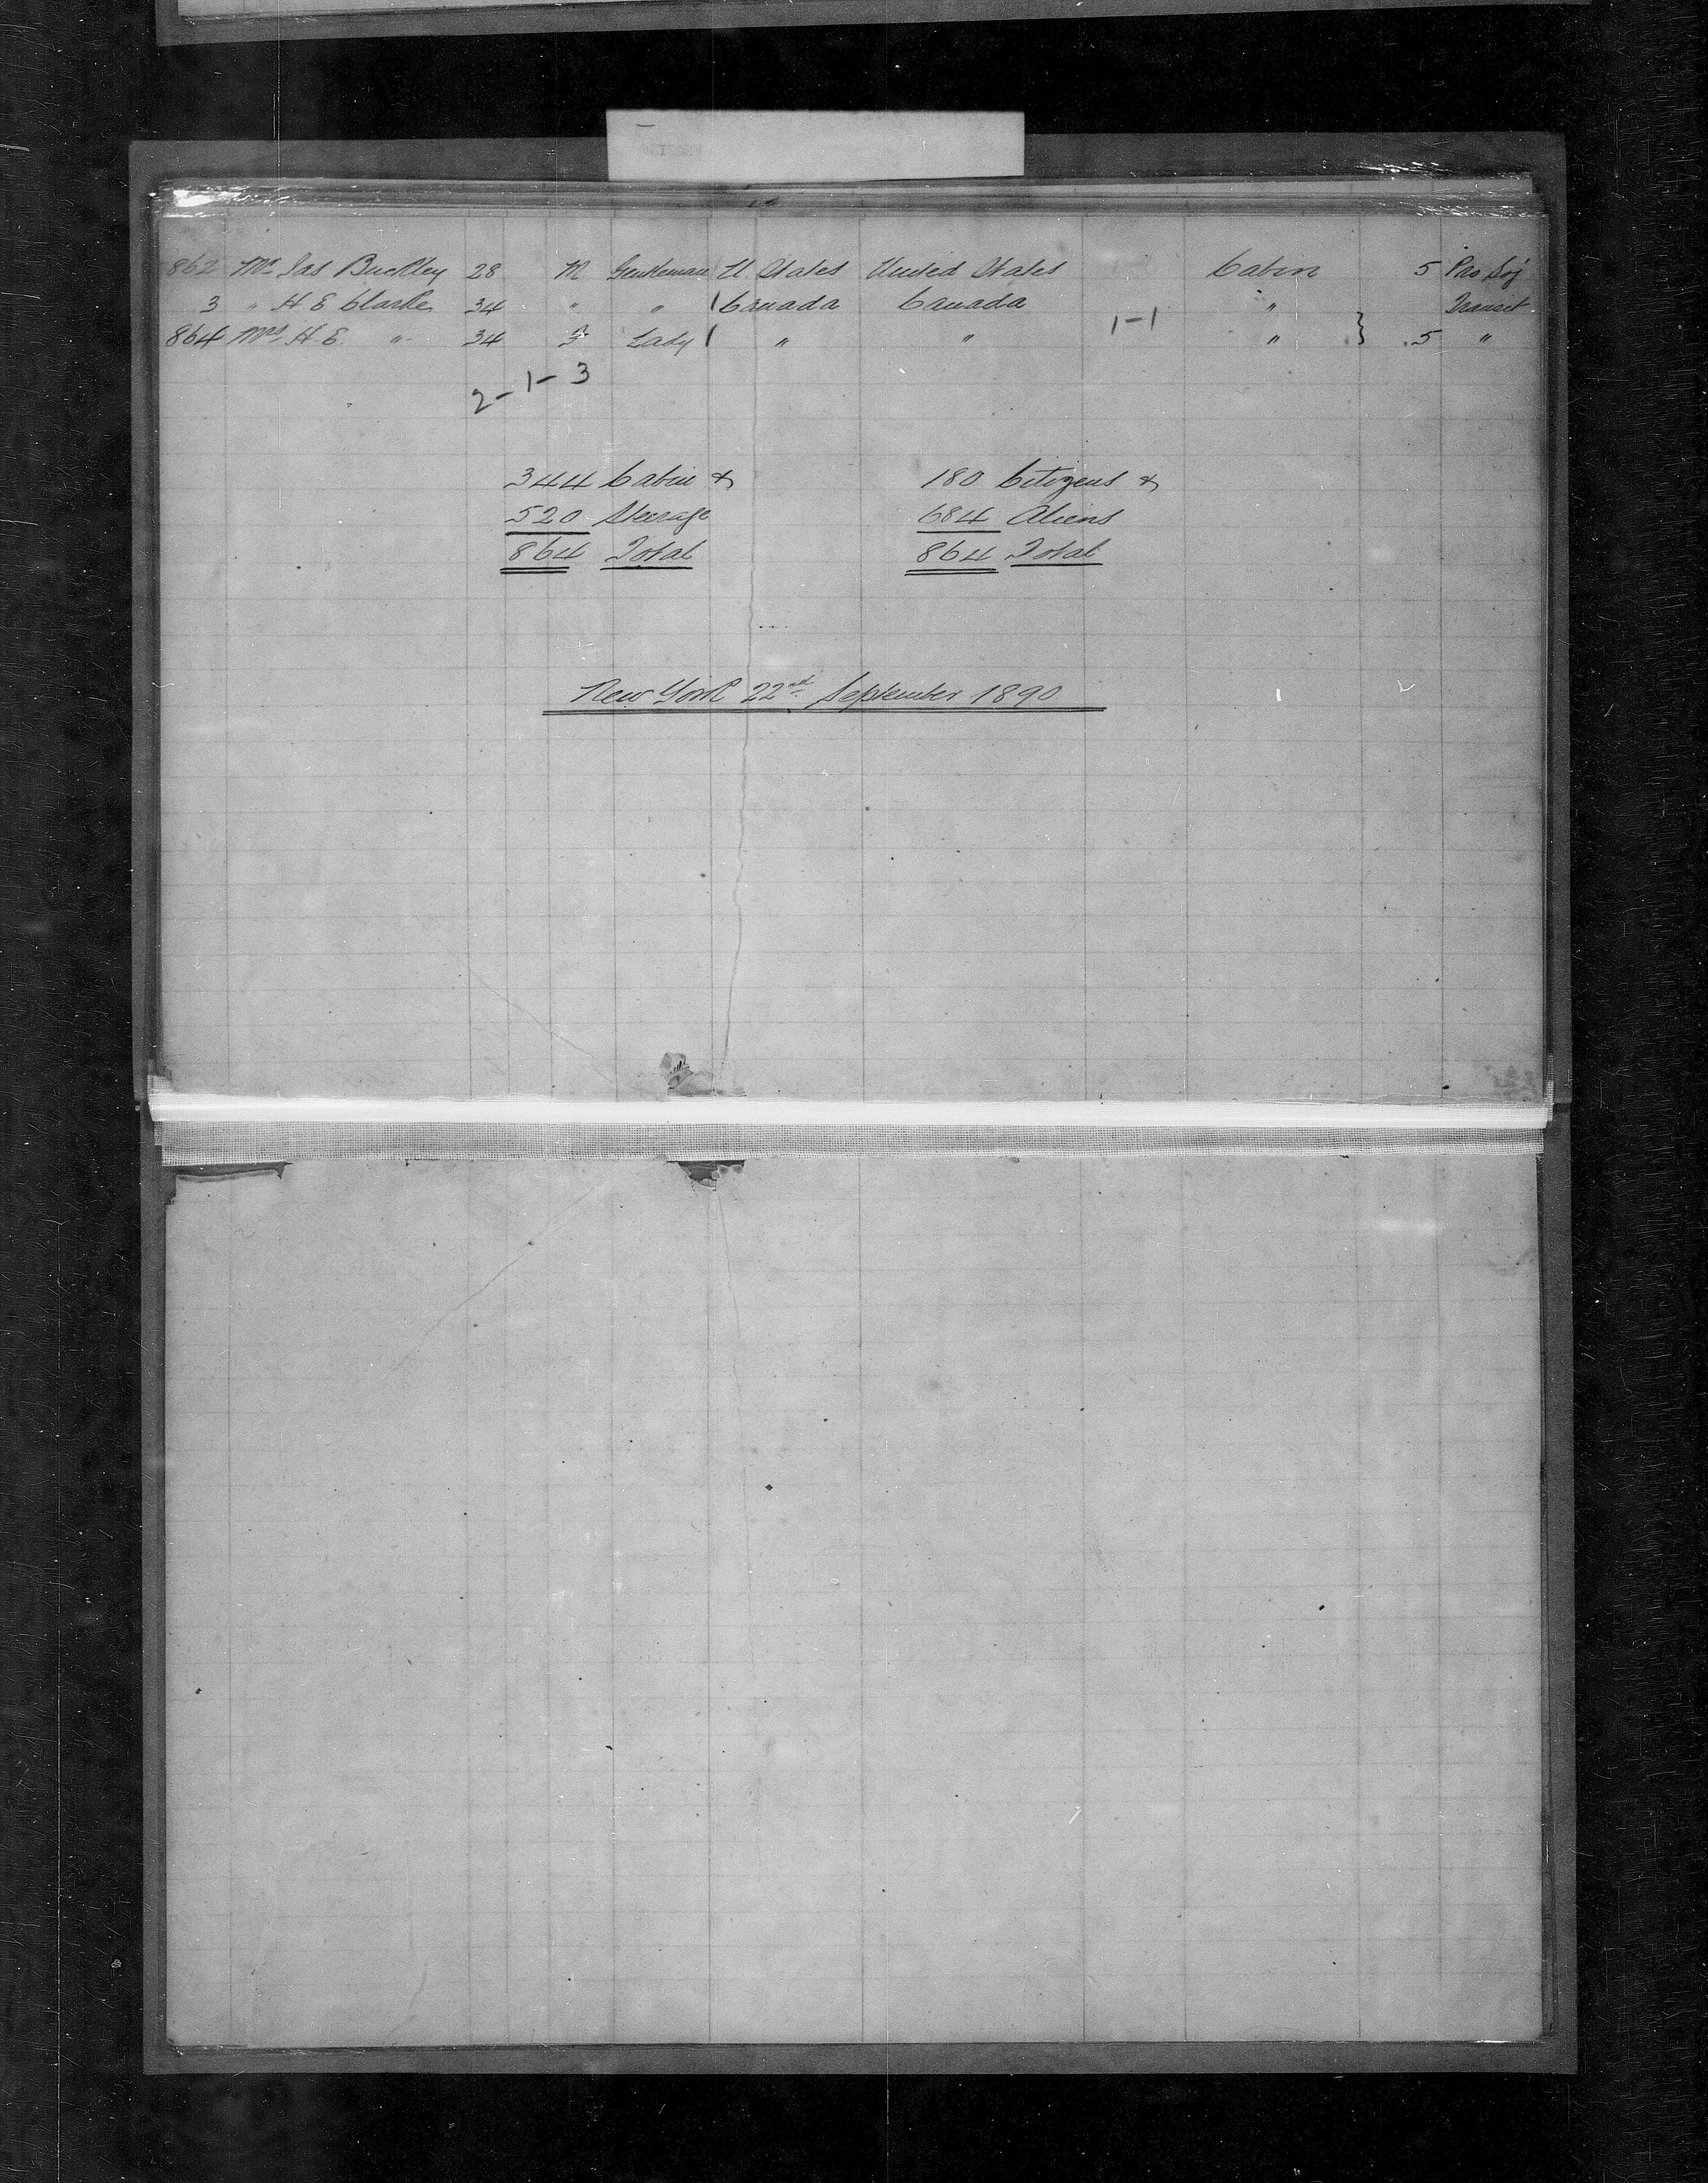 862 Mr Jas Buckley 28 M Gentleman U. States United States Cabin 5 Pro Soj
3 " H E Clarke 34 " " Canada Canada " Transit
864 Mrs H. E. " 34 F Lady " " 1-1 " } 5 "
2-1-3
344 Cabin & 180 Citizens &
520 Steerage 684 Aliens
864 Total 864 Total
New York 22nd. September 1890